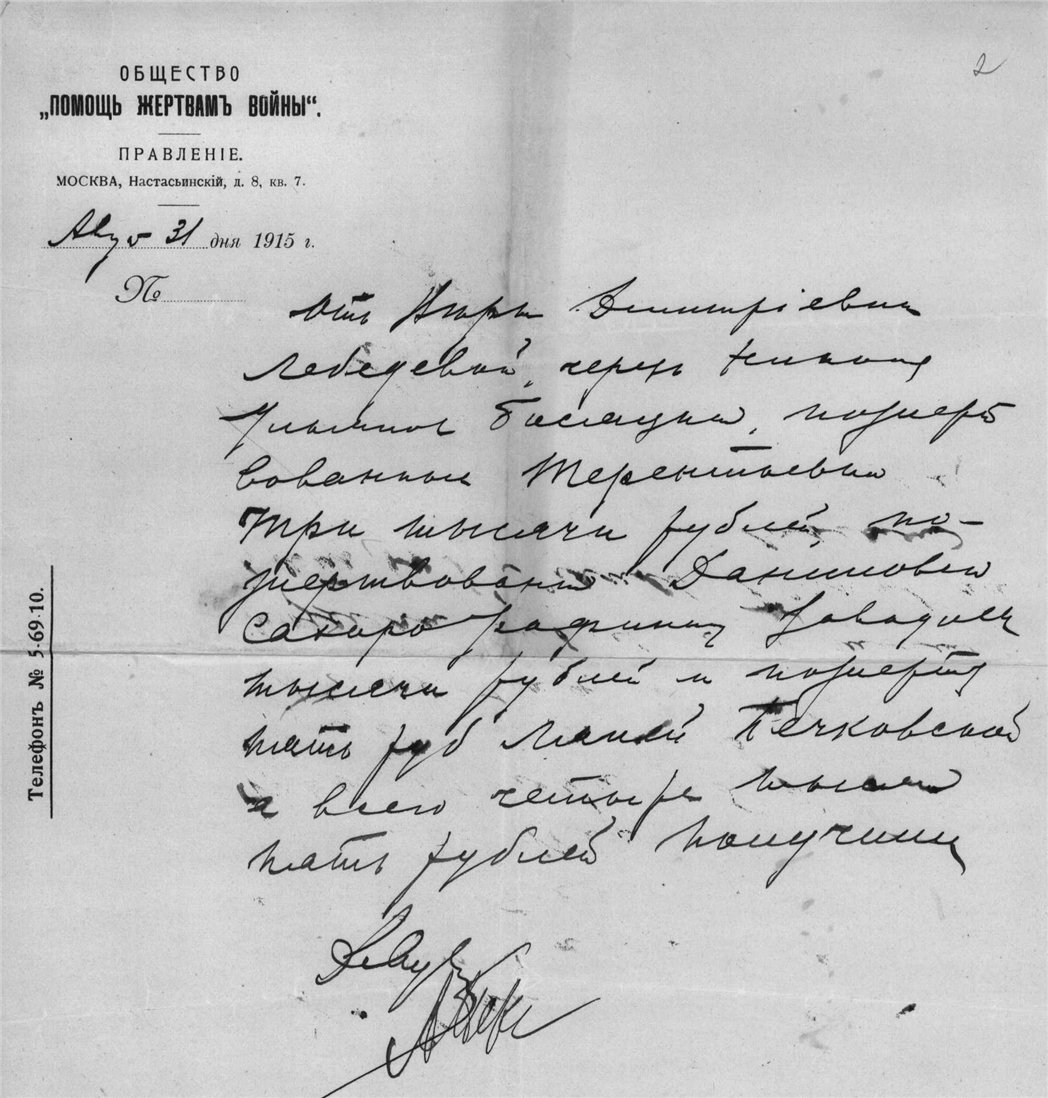 2
ОБЩЕСТВО
„ПОМОЩЬ ЖЕРТВАМЪ ВОЙНЫ“.
ПРАВЛЕНІЕ.
МОСКВА, Настасьинскій, д. 8, кв. 7.
31 дня 1915 г.
№
Отъ Дмитріевны
Лебедевой, черезъ
вованные Терентьевым
Три тысячи рублей, по-
жертвованы Даниловск
сахаро рафинн заводом
тысячи рублей и
пять руб Печковской
а всего четыре тысячи
пять рублей получили
Телефонъ № 5-69-10.